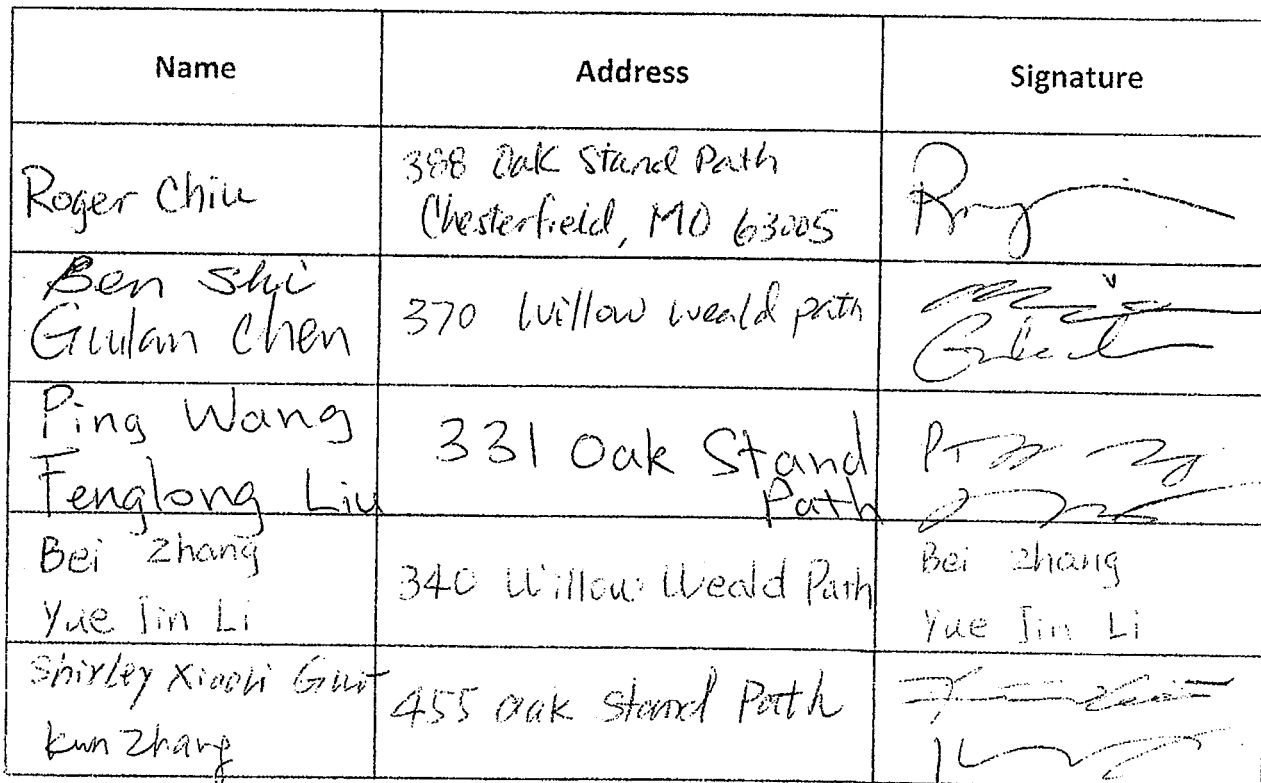 Name Address Signature
Roger Chiu
388 Oak Stand Path
Chesterfield, MO 63005
Ben Shi
Guilan Chen
370 Willow Weald path
Ping Wang
Fenglong Liu
331 Oak Stand
Path
Bei Zhang
Yue Jin Li
340 Willow Weald Path
Bei Zhang
Yue Jin Li
Shirley
Kun Zhang
455 Oak Stand Path